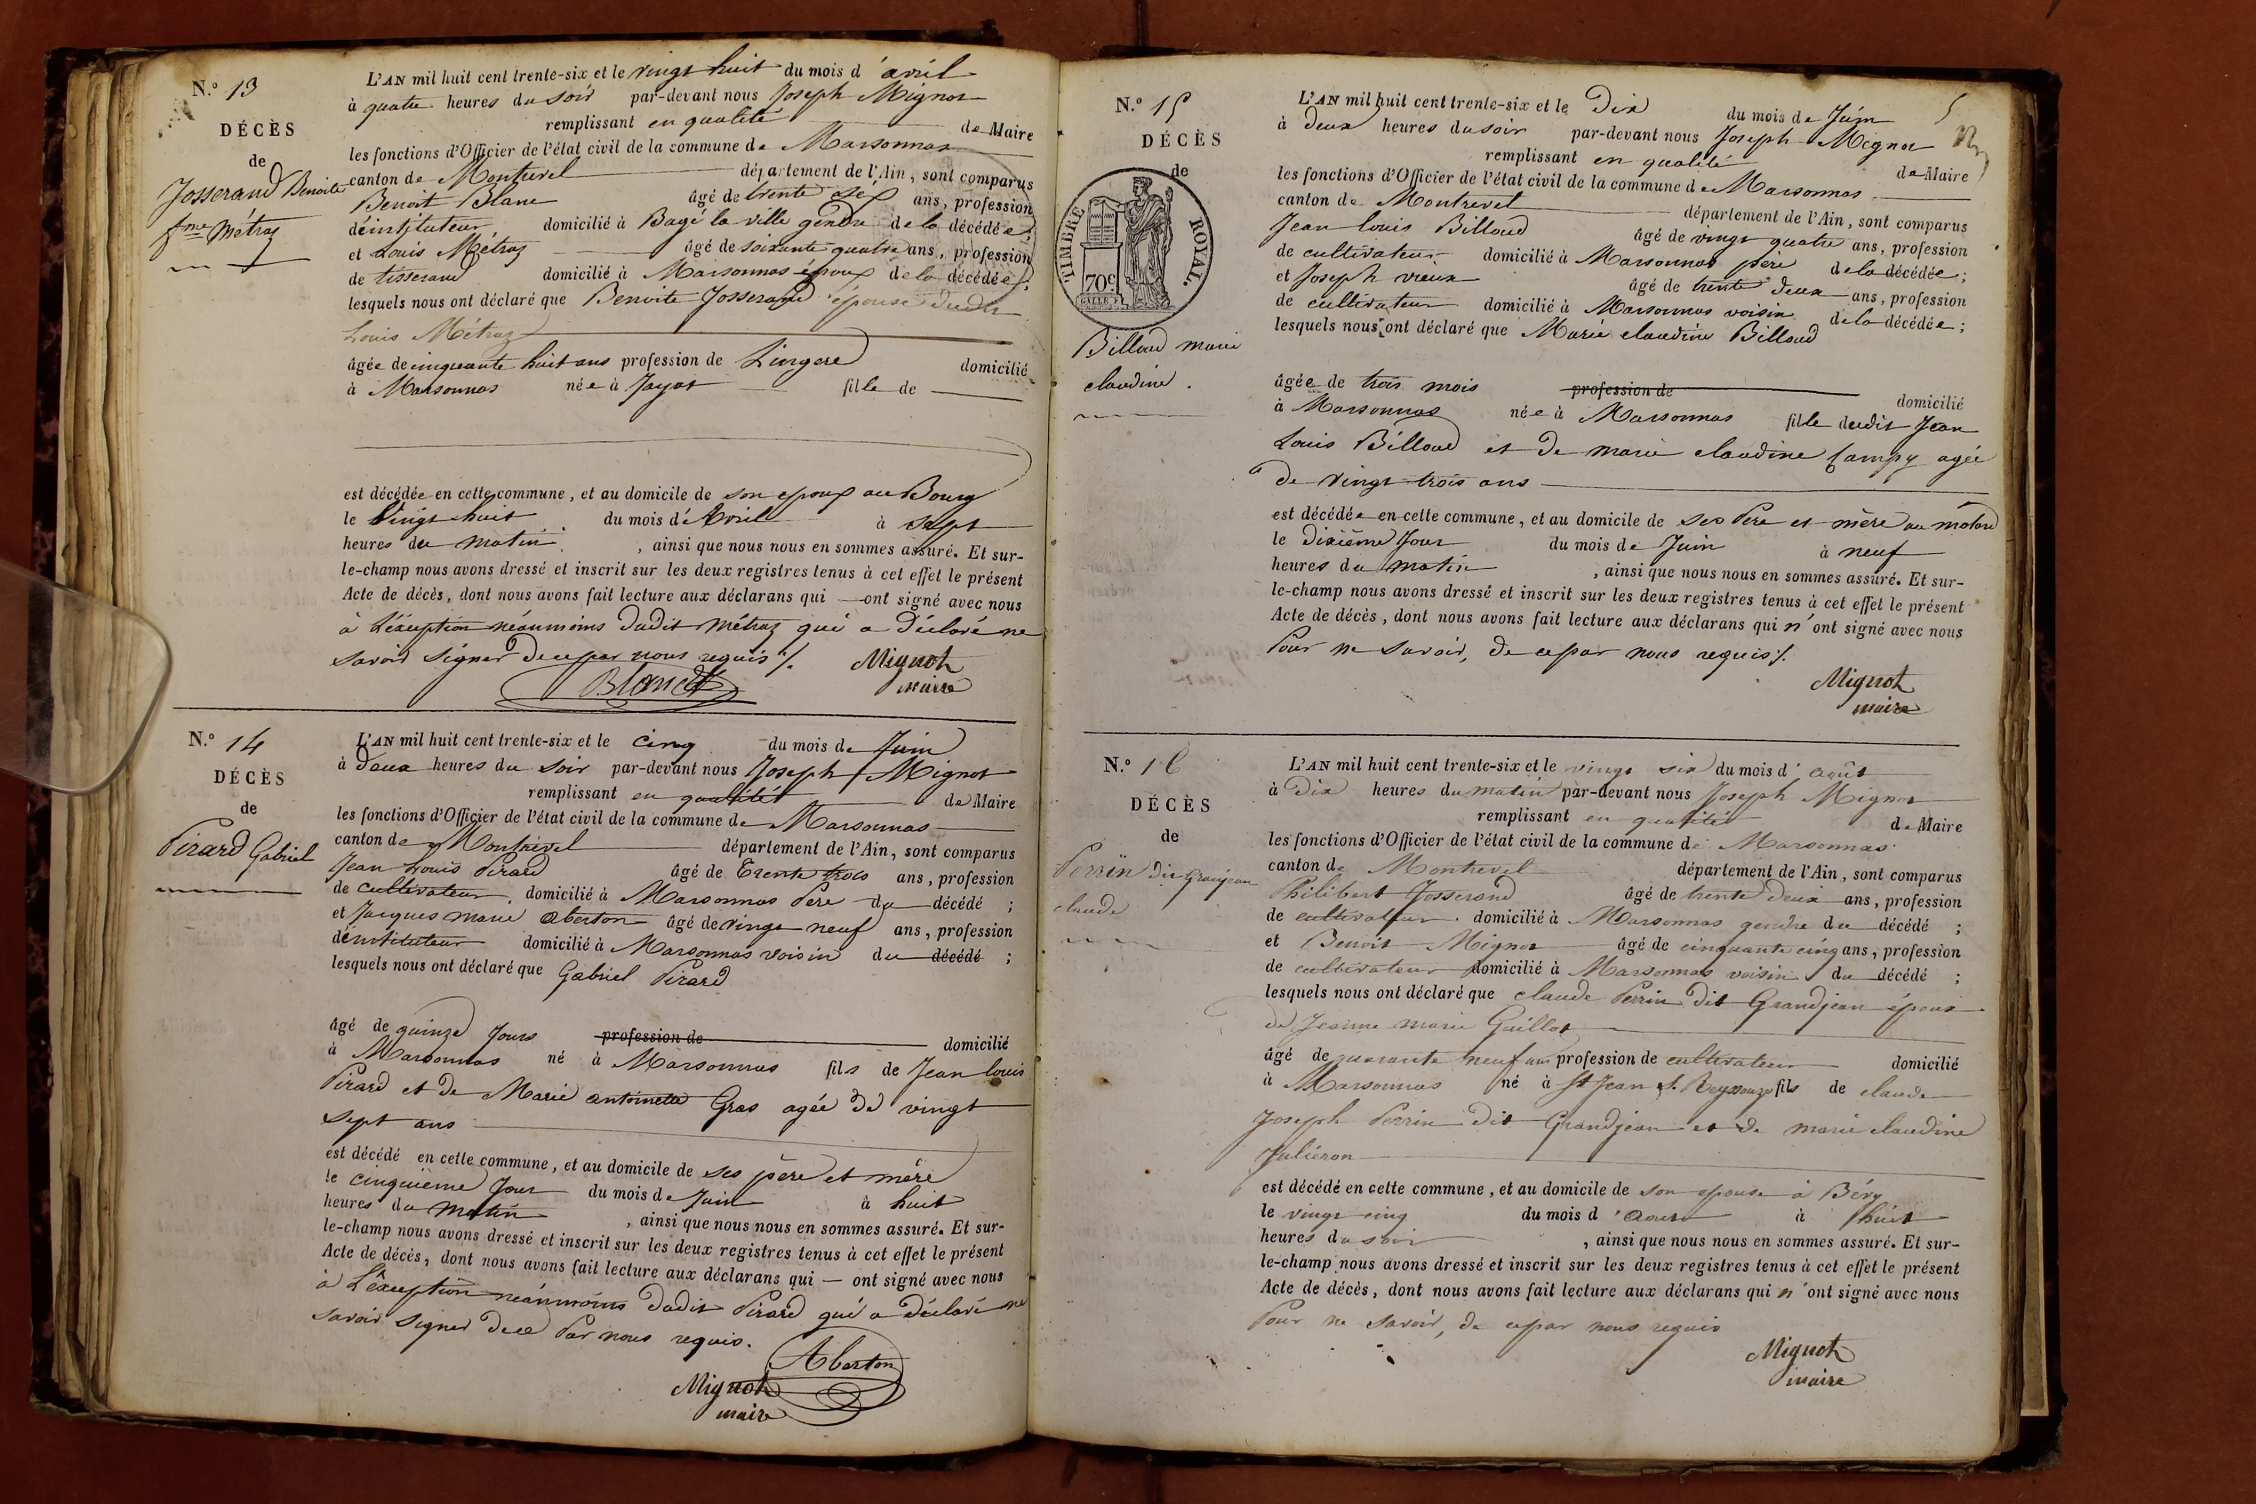 N.º 13
DÉCÈS
de
Josserand Benoite
fme Métraz
L'AN mil huit cent trente-six et le vingt huit du mois d'avril
à quatre heures du soir par-devant nous Joseph Mignot
remplissant en qualité de Maire
les fonctions d'Officier de l'état civil de la commune de Marsonnas
canton de Montrevel département de l'Ain, sont comparus
Benoit Blanc âgé de trente six ans, profession
d'institateur domicilié à Bagé la ville gendre de la décédée;
et Louis Métraz âgé de soixante quatre ans, profession
de tisserand domicilié à Marsonnas époux de la décédée;
lesquels nous ont déclaré que Benoite Josserand épouse dudit
Louis Métraz
âgée de cinquante huit ans profession de Lingere domicilié
à Marsonnas née à Jayat fille de
est décédée en cette commune, et au domicile de son epoux au Bourg
le vingt huit du mois d'Avril à sept
heures du matin, ainsi que nous nous en sommes assuré. Et sur-
le-champ nous avons dressé et inscrit sur les deux registres tenus à cet effet le présent
Acte de décès, dont nous avons fait lecture aux déclarans qui ont signé avec nous
à L'éxeuption néanmoins dudit Métraz qui a déclaré ne
savoir signer de ce par nous requis ./.
Mignot
maire
Blanc
N.º 14
DÉCÈS
de
Pirard Gabriel
L'AN mil huit cent trente-six et le cinq du mois de Juin
à deux heures du soir par-devant nous Joseph Mignot
remplissant en qualité de Maire
les fonctions d'Officier de l'état civil de la commune de Marsonnas
canton de Montrevel département de l'Ain, sont comparus
Jean Louis Pirard âgé de Trente trois ans, profession
de cultivateur domicilié à Marsonnas Pere du décédé;
et Jacques marie Aberton âgé de vingt neuf ans, profession
d'instituteur domicilié à Marsonnas voisin du décédé;
lesquels nous ont déclaré que Gabriel Pirard
âgé de quinze Jours profession de domicilié
à Marsonnas né à Marsonnas fils de Jean Louis
Pirard et de Marie antoinette Gras agée de vingt
sept ans
est décédé en cette commune, et au domicile de ses père et mère
le cinquième Jour du mois de Juin à huit
heures du matin, ainsi que nous nous en sommes assuré. Et sur-
le-champ nous avons dressé et inscrit sur les deux registres tenus à cet effet le présent
Acte de décès, dont nous avons fait lecture aux déclarans qui — ont signé avec nous
à L'éxeuption néanmoins dudit Pirard qui a déclaré ne
savoir signer de ce Par nous requis.
Aberton
Mignot
maire
5
N.º 15
DÉCÈS
de
TIMBRE ROYAL.
70c
Billoud marie
claudine.
L'AN mil huit cent trente-six et le Dix du mois de Juin
à deux heures du soir par-devant nous Joseph Mignot
remplissant en qualité de Maire
les fonctions d'Officier de l'état civil de la commune de Marsonnas
canton de Montrevel département de l'Ain, sont comparus
Jean Louis Billoud âgé de vingt quatre ans, profession
de cultivateur domicilié à Marsonnas père de la décédée;
et Joseph vieux âgé de trente deux ans, profession
de cultivateur domicilié à Marsonnas voisin de la décédée;
lesquels nous ont déclaré que Marie claudine Billoud
âgée de trois mois profession de domicilié
à Marsonnas née à Marsonnas fille dudit Jean
Louis Billoud et de marie claudine Campy agée
de vingt trois ans
est décédée en cette commune, et au domicile de ses Pere et mère au
le dixième Jour du mois de Juin à neuf
heures du matin, ainsi que nous nous en sommes assuré. Et sur-
le-champ nous avons dressé et inscrit sur les deux registres tenus à cet effet le présent
Acte de décès, dont nous avons fait lecture aux déclarans qui n'ont signé avec nous
Pour ne savoir, de ce par nous requis ./.
Mignot
maire
N.º 16
DÉCÈS
de
Perrin dit Granjean
claude
L'AN mil huit cent trente-six et le vingt six du mois d'août
à Dix heures du matin par-devant nous Joseph Mignot
remplissant en qualité de Maire
les fonctions d'Officier de l'état civil de la commune de Marsonnas
canton de Montrevel département de l'Ain, sont comparus
Philibert Josserand âgé de trente deux ans, profession
de cultivateur domicilié à Marsonnas gendre du décédé;
et Benoit Mignot âgé de cinquante cinq ans, profession
de cultivateur domicilié à Marsonnas voisin du décédé;
lesquels nous ont déclaré que claude Perrin dit Grandjean époux
de Jeanne marie Guillot
âgé de quarante neuf ans profession de cultivateur domicilié
à Marsonnas né à St Jean s. Reyssouze fils de claude
Joseph Perrin dit Grandjean et de marie claudine
Juliéron
est décédé en cette commune, et au domicile de son epouse à Béry
le vingt cinq du mois d'Aout à huit
heures du soir, ainsi que nous nous en sommes assuré. Et sur-
le-champ nous avons dressé et inscrit sur les deux registres tenus à cet effet le présent
Acte de décès, dont nous avons fait lecture aux déclarans qui n'ont signé avec nous
Pour ne savoir, de ce par nous requis
Mignot
maire